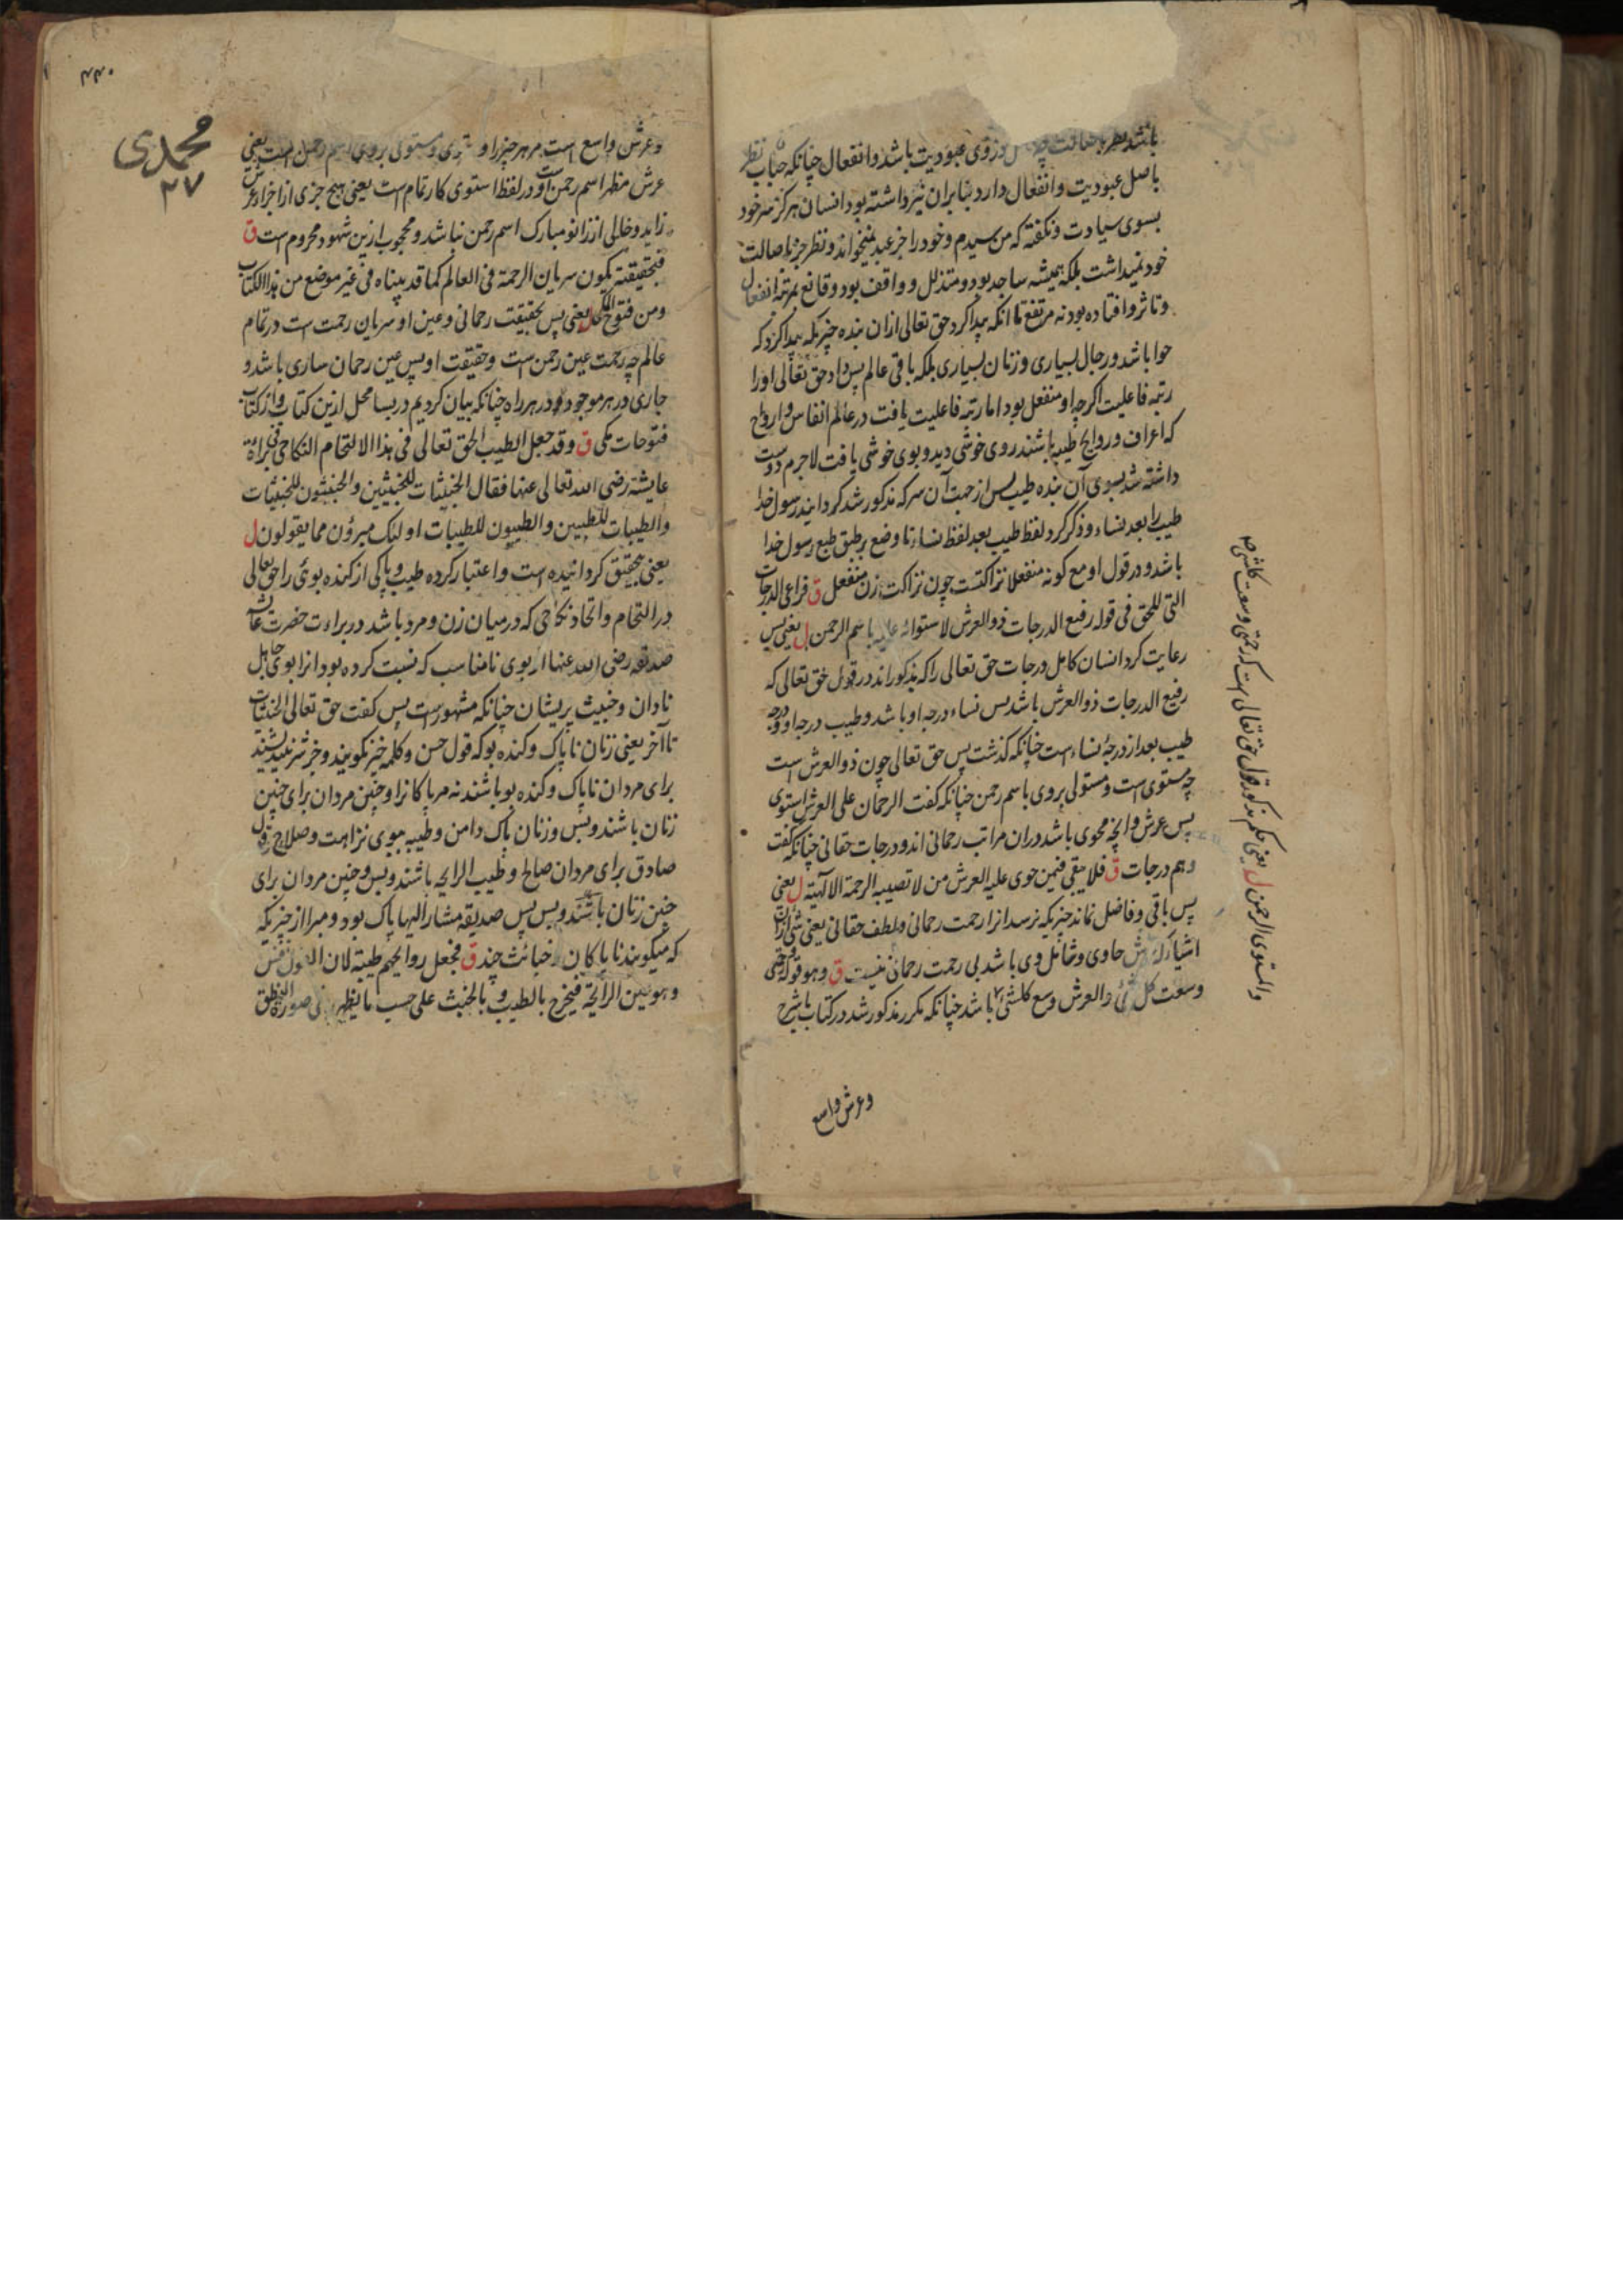 باشد نظر باصالت
وزوی عبودیت باشد وانفعال چنانکه جناب نظر
باصل عبودیت وانفعال دارد بنابران نبرداشته بود انسان هرکز سر خود
بسوی سیادت ونکفته که من سیدم وخود را جز عبد نمیخواند ونظر جز باصالت
خود نمیداشت بلکه همیشه ساجد بود ومتذلل وواقف بود وقانع بمرتبه انفعال
وتاثر وافتاده بود نه مرتفع تا انکه پیدا کرد حق تعالی ازان بنده چیزیکه پیدا کرد که
حوا باشد ورجال بسیاری وزنان بسیاری بلکه باقی عالم پس داد حق تعالی اورا
رتبه فاعلیت اکرچه او منفعل بود اما رتبه فاعلیت یافت در عالم انفاس وارواح
که اعراف وروایح طیبه باشند روی خوشی دید وبوی خوشی یافت لاجرم دوست
داشته شد بسوی آن بنده طیب پس از جهت آن سر که مذکور شد کردانید رسول خدا
طیب را بعد نساء وذکر کرد لفظ طیب بعد لفظ نساء تا وضع بر طبق طبع رسول خدا
باشد ودر قول او مع کونه منفعلا نزاکتست چون نزاکت زن منفعل ق فراعی الدرجات
التی للحق فی قوله رفیع الدرجات ذوالعرش لاستوائه علیه باسم الرحمن ل یعنی پس
رعایت کرد انسان کامل درجات حق تعالی را که مذکور اند در قول حق تعالی که
رفیع الدرجات ذوالعرش باشد پس نساء درجه او باشد وطیب درجه او ودرجه
طیب بعد از درجهٔ نساء است چنانکه کذشت پس حق تعالی چون ذوالعرش است
چه مستوی است ومستولی بروی باسم رحمن چنانکه کفت الرحمان علی العرش استوی
پس عرش وانچه محوی باشد دران مراتب رحمانی اند ودرجات حقانی چنانکه کفت
وهم درجات ق فلا یبقی فیمن حوی علیه العرش من لا تصیبه الرحمة الالهیة ل یعنی
پس باقی وفاضل نماند چیزیکه نرسد انرا رحمت رحمانی ولطف حقانی یعنی شی ازان
اشیاء که عرش حاوی وشامل وی باشد بی رحمت رحمانی نیست ق وهو قوله رحمتی
وسعت کل شئ والعرش وسع کلشئ باشد چنانکه مکرر مذکور شد در کتاب باشرح
والمستوی الرحمن ل یعنی حکم مذکور قول حق تعالی است که رحمتی وسعت کلشی
وعرش واسع
۴۴۰
محمدی
۲۷
وعرش واسع است مر هر چیز را و مستوی ومستولی بروی اسم رحمن است یعنی
عرش مظهر اسم رحمن است ودر لفظ استوی کار تمام است یعنی هیچ جزی از اجزاء عرش
زاید وخالی از زانو مبارک اسم رحمن نباشد ومحجوب ازین شهود محروم است ق
فبحقیقته یکون سریان الرحمة فی العالم کما قد بیناه فی غیر موضع من هذا الکتاب
ومن فتوح المکی ل یعنی پس بحقیقت رحمانی وعین او سریان رحمت است در تمام
عالم چه رحمت عین رحمن است وحقیقت او پس عین رحمان ساری باشد و
جاری در هر موجود ودر هر راه چنانکه بیان کردیم در بسا محل ازین کتاب واز کتاب
فتوحات مکی ق وقد جعل الطیب الحق تعالی فی هذا الالتحام النکاحی فی براءة
عایشة رضی الله تعالی عنها فقال الخبیثات للخبیثین والخبیثون للخبیثات
والطیبات للطیبین والطیبون للطیبات اولئک مبرؤن مما یقولون ل
یعنی بتحقیق کردانیده است واعتبار کرده طیب وپاکی از کنده بوی را حق تعالی
در التحام واتحاد نکاحی که درمیان زن ومرد باشد در براءت حضرت عایشه
صدیقه رضی الله عنها از بوی نامناسب که نسبت کرده بود انرا بوی جاهل
نادان وخبیث پریشان چنانکه مشهور است پس کفت حق تعالی الخبیثات
تا آخر یعنی زنان ناپاک وکنده بو که قول حسن وکلمه خیز نکویند وجز شر نیندیشند
برای مردان ناپاک وکنده بو باشند نه مر پاکانرا وچنین مردان برای چنین
زنان باشند وبس وزنان پاک دامن وطیبه ببوی نزاهت وصلاح وقول
صادق برای مردان صالح وطیب الرایحه باشند وبس وچنین مردان برای
چنین زنان باشند وبس پس صدیقه مشار الیها پاک بود ومبرا از چیزیکه
که میکویند ناپاکان خبائث چند ق فجعل روایحهم طیبة لان القول نفس
وهو عین الرائحة فیخرج بالطیب وبالخبث علی حسب ما یظهر فی صورة النطق